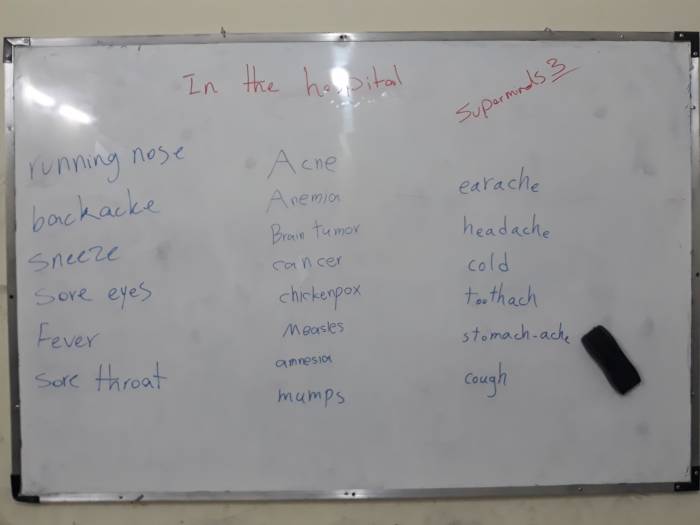 In the hospital
Superminds 3
running nose
backacke
sneeze
Sore eyes
Fever
Sore throat
Acne
Anemia
Brain tumor
cancer
chickenpox
Measles
amnesia
mumps
earache
headache
cold
toothach
stomach-ache
cough